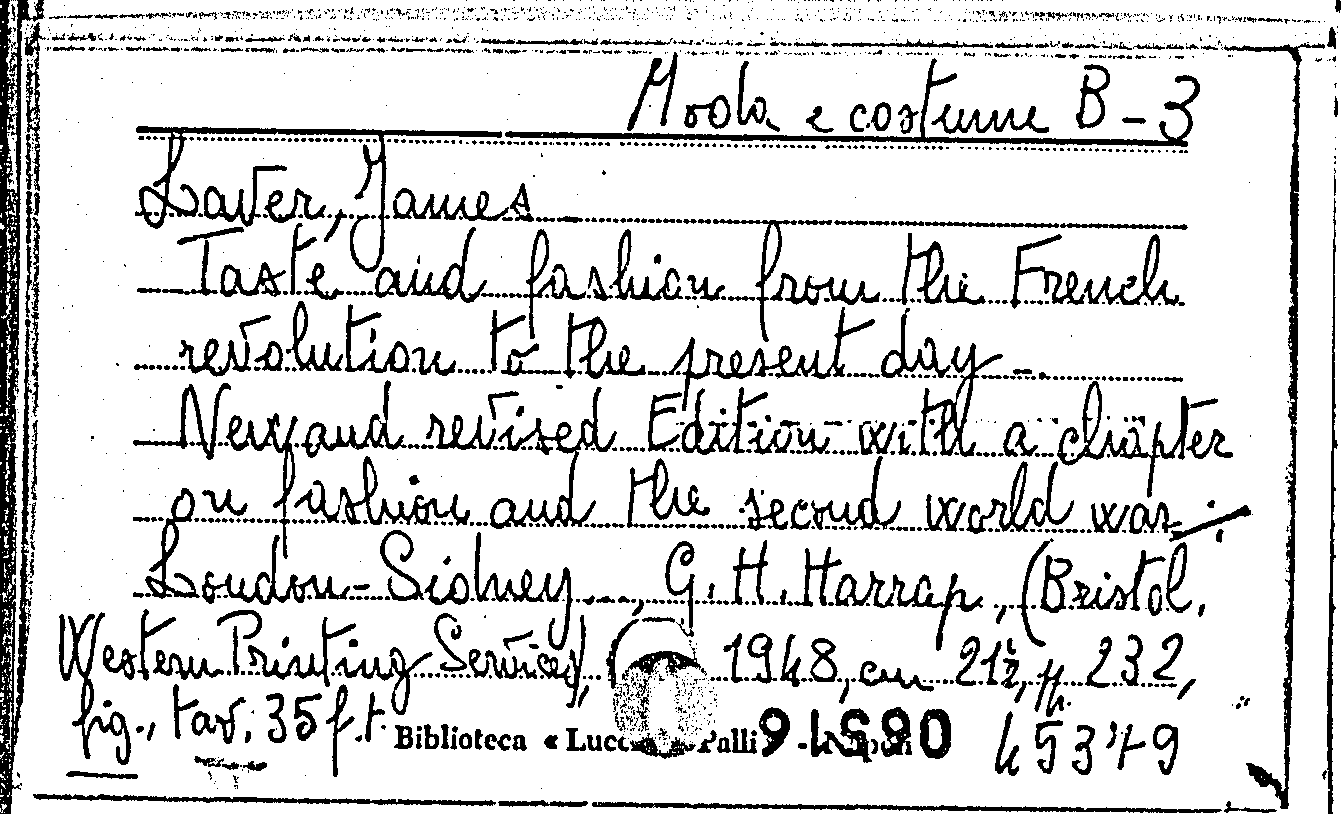 Moda e costume B-3
Laver, James
Taste and fashion from the French
revolution to the present day -.
New and revised Edition with a chapter
on fashion and the second world war ./.
London-Sidney..., G. H. Harrap, (Bristol.
Western Printing Services), 1948, cm 21½, pp. 232,
fig., tav. 35 f.t.
Biblioteca « Lucc Palli
453479